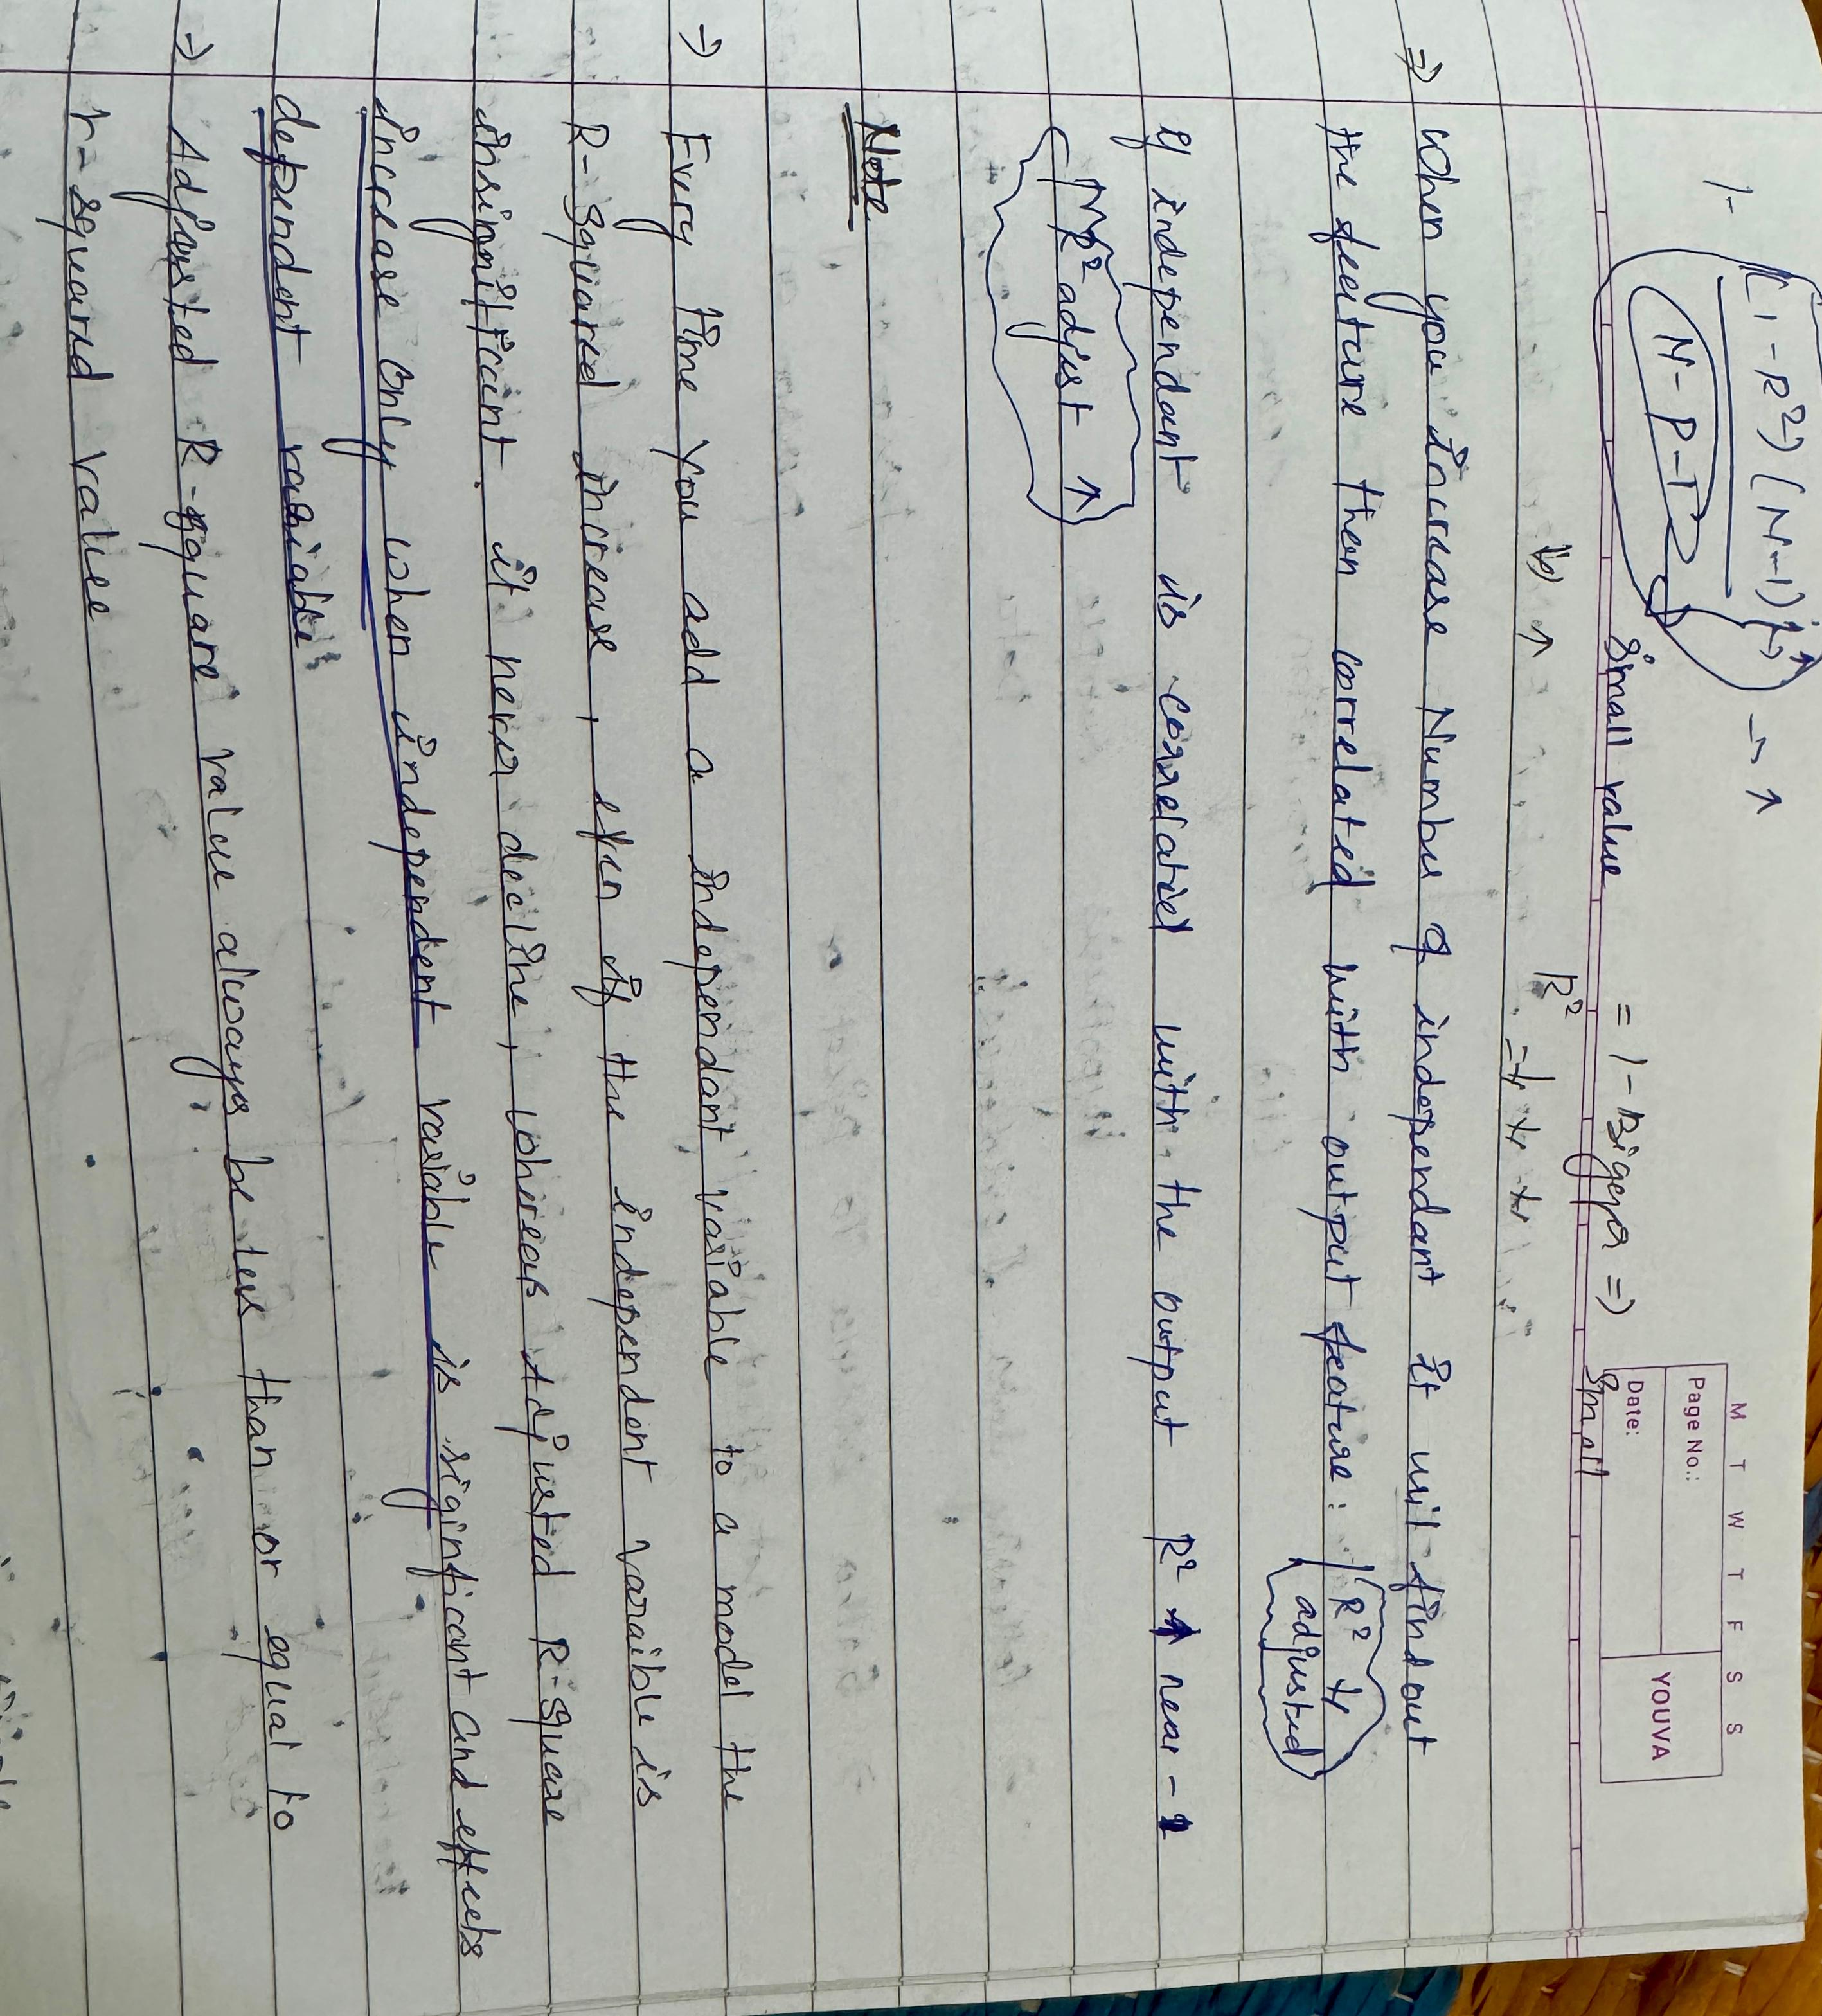 M T W T F S S
Page No.:
Date:
YOUVA
1- (1-R²)(N-1)
N-P-1
small value = 1- Bigger => small
R²
=> when you increase Number of independant it will find out
the feature then correlated with output feature: R² ↓ adjusted
If independant is correlated with the output R² ↑ near - 1
R² adjust ↑
Note
=> Every time you add a independant variable to a model the
R-squared increase, even if the independent varaible is
insignificant. it never decline, whereas Adjusted R-square
increase only when independent variable is significant and effects
dependent variable
=> Adjusted R-square value always be less than or equal to
r-squared value